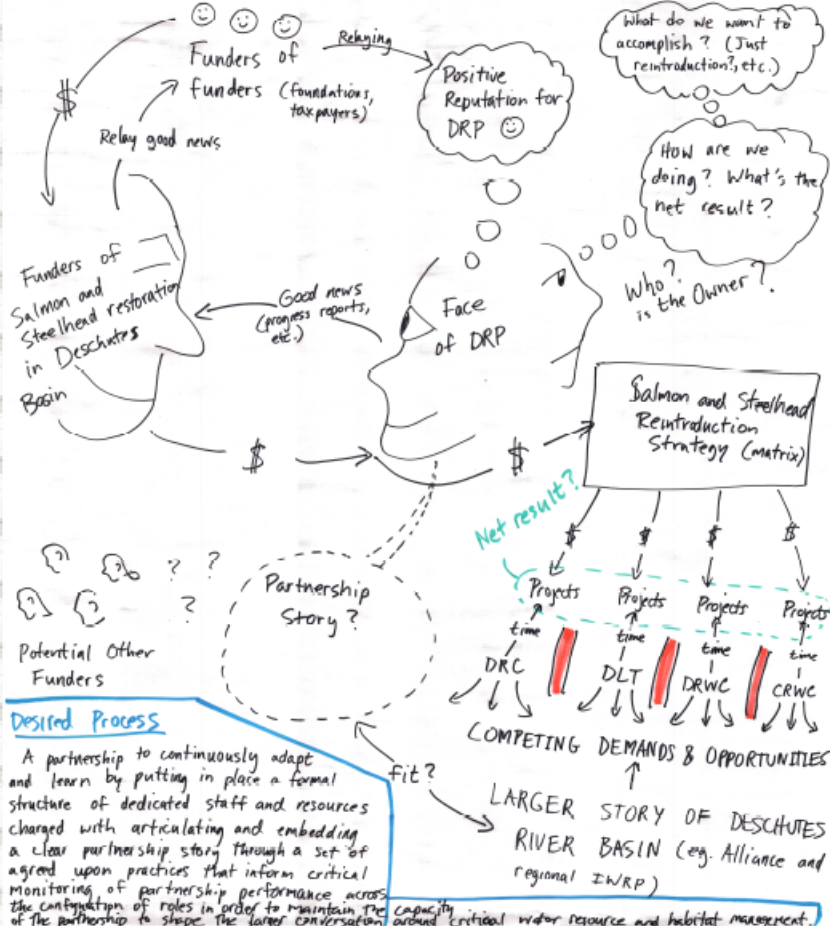 Funders of
funders (foundations,
taxpayers)
Relaying
$
Relay good news
Positive
Reputation for
DRP
What do we want to
accomplish? (Just
reintroduction?, etc.)
How are we
doing? What's the
net result?
Who?
is the Owner?
Funders of
Salmon and
Steelhead restoration
in Deschutes
Basin
Good news
(progress reports,
etc.)
Face
of DRP
$
$
Salmon and Steelhead
Reintroduction
Strategy (matrix)
Net result?
$ $ $ $
Projects Projects Projects Projects
time time time time
DRC DLT DRWC CRWC
COMPETING DEMANDS & OPPORTUNITIES
? ?
?
Potential Other
Funders
Partnership
Story?
fit?
LARGER STORY OF DESCHUTES
RIVER BASIN (eg. Alliance and
regional IWRP)
Desired Process
A partnership to continuously adapt
and learn by putting in place a formal
structure of dedicated staff and resources
charged with articulating and embedding
a clear partnership story through a set of
agreed upon practices that inform critical
monitoring of partnership performance across
the configuration of roles in order to maintain the capacity
of the partnership to shape the larger conversation around critical water resource and habitat management.